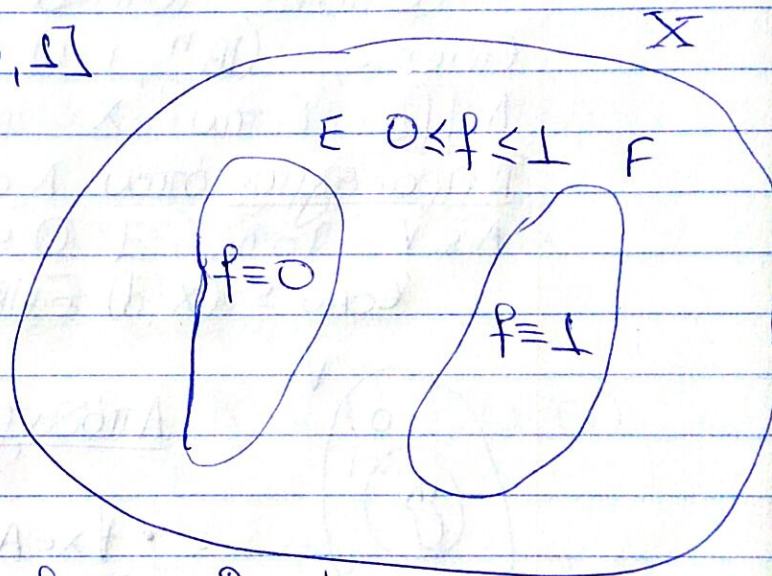 , 1]
X
E 0 ≤ f ≤ 1 F
f ≡ 0
f ≡ 1